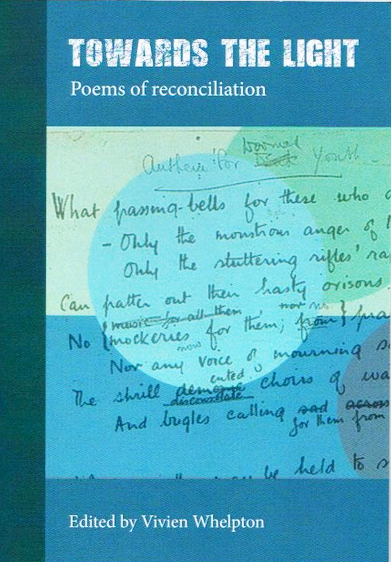 TOWARDS THE LIGHT
Poems of reconciliation
Anthem for Doomed Youth
What passing-bells for these who
- Only the monstrous anger of
Only the stuttering rifles' ra
Can patter out their hasty orisons
No { music for all them nor no
mockeries for them; from }
now
Nor any voice of mourning s
The shrill demented choirs of wa
disconsolate
And bugles calling sad across
for them from
be held to s
Edited by Vivien Whelpton